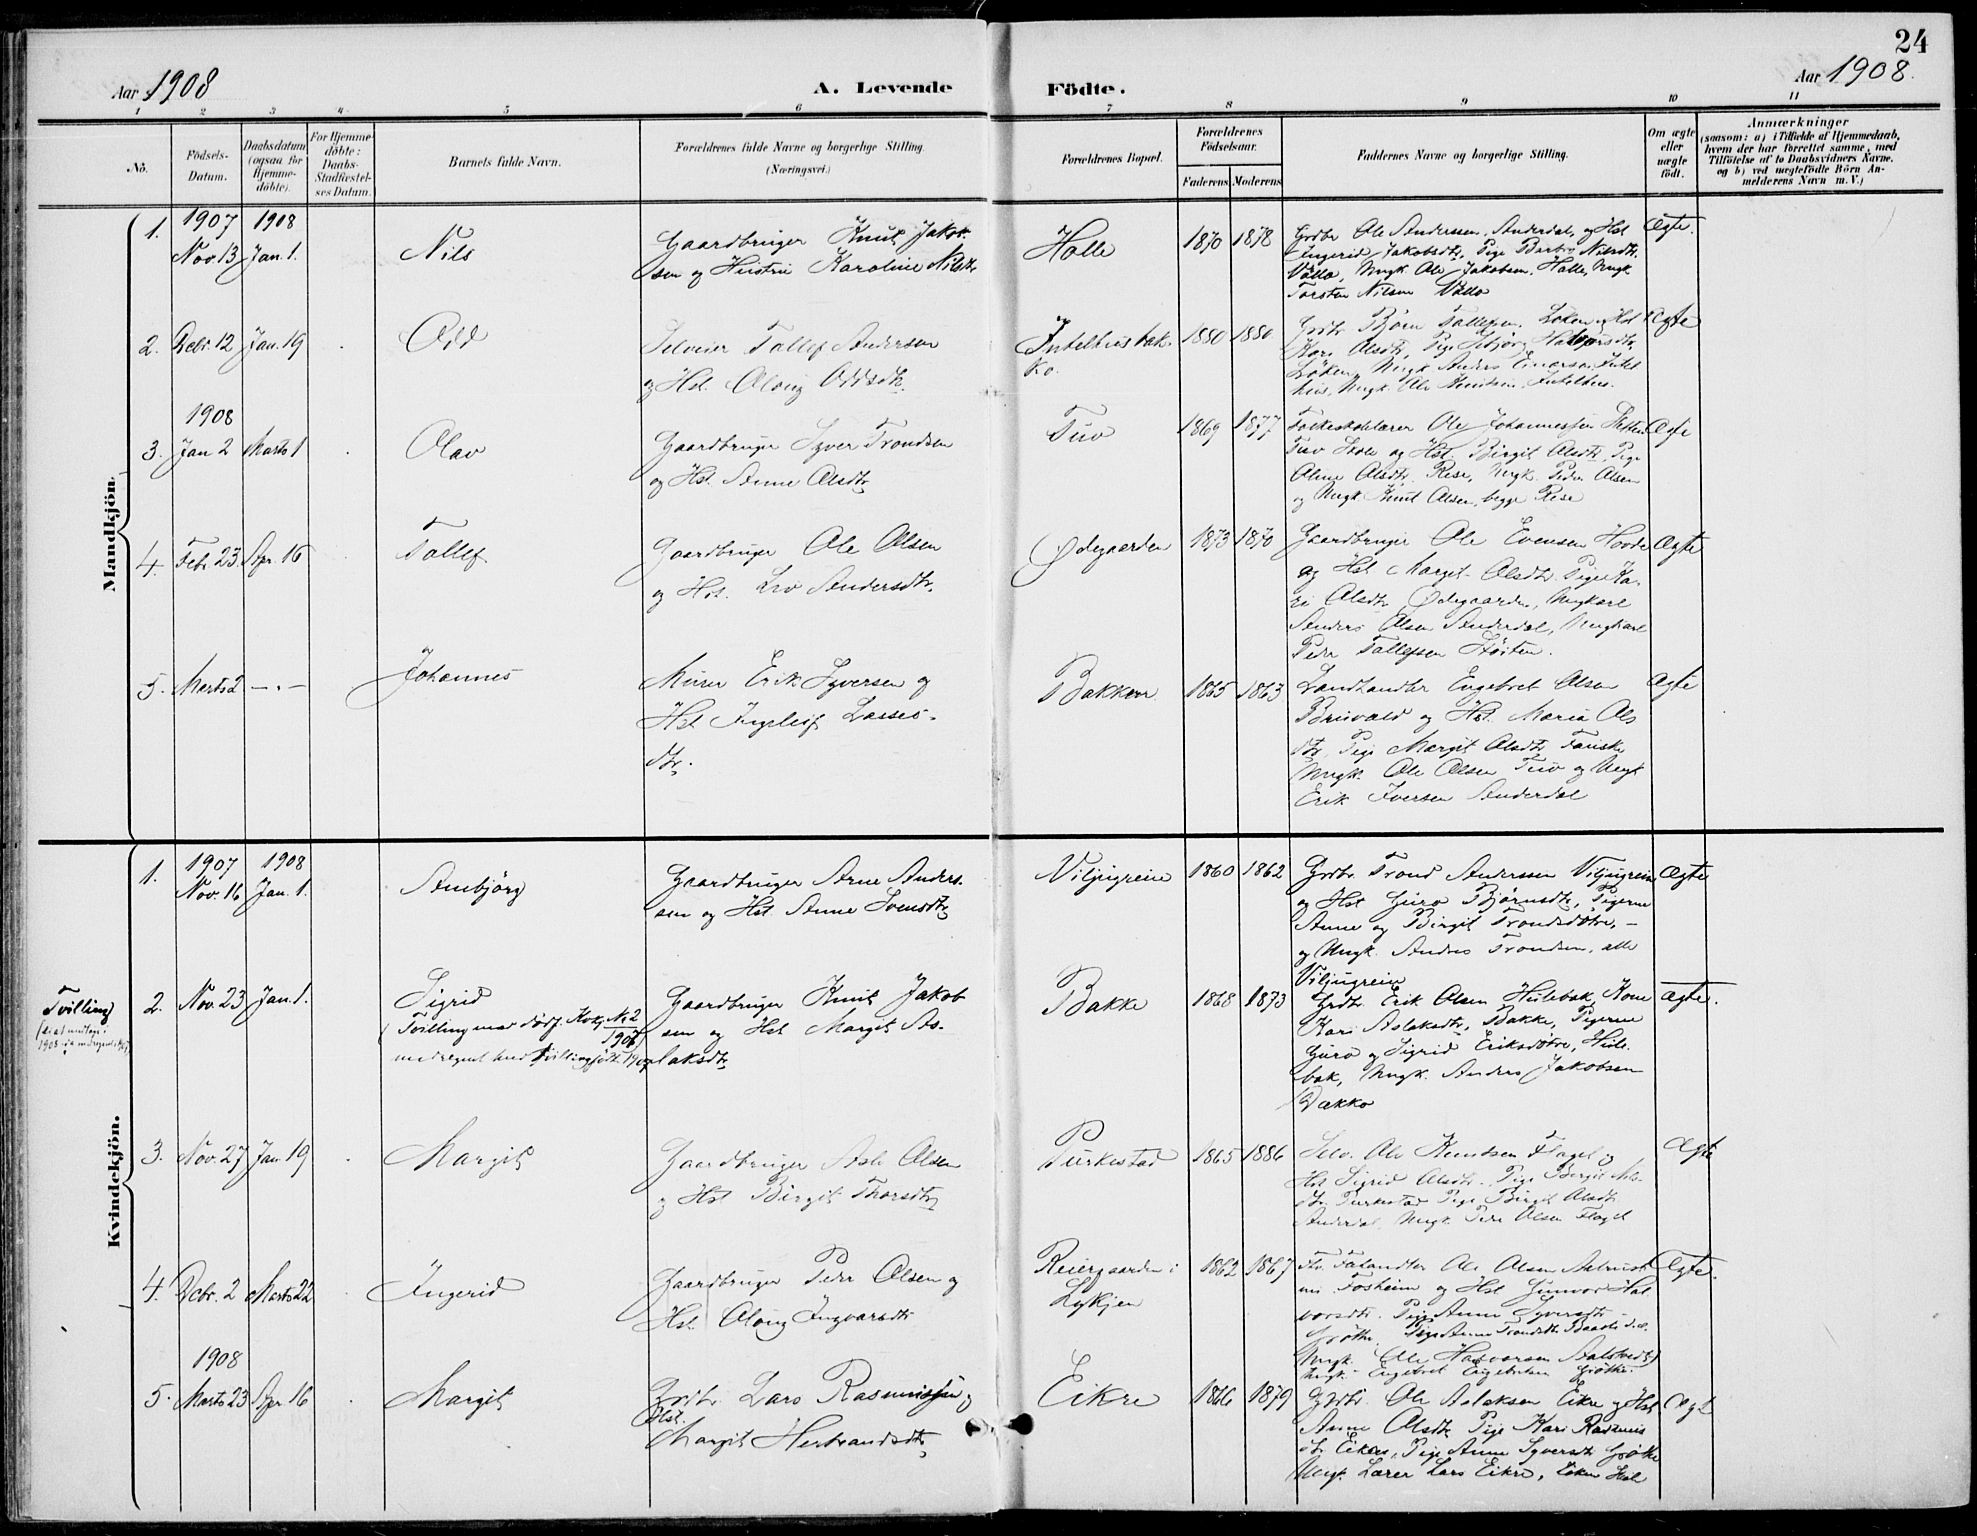 24
Aar 1908
A. Levende Födte.
Aar 1908.
1 2 3 4 5 6 7 8 9 10 11
No.
Födsels-
Datum.
Daabsdatum
(ogsaa for
Hjemme-
döbte).
For Hjemme-
döbte:
Daabs-
Stadfæstel-
ses Datum.
Barnets fulde Navn.
Forældrenes fulde Navne og borgerlige Stilling.
(Næringsvei.)
Forældrenes Bopæl.
Forældrenes
Födselsaar.
Faderens Moderens
Faddernes Navne og borgerlige Stilling.
Om ægte
eller
uægte
födt.
Anmærkninger
(saasom: a) i Tilfælde af Hjemmedaab,
hvem der har forrettet samme, med
Tilföielse af to Daabsvidners Navne.
og b) ved uægtefödte Börn An-
melderens Navn m. V.)
Mandkjön.
1.
1907
Nov. 13
1908
Jan. 1.
Nils
Gaardbruger Knut Jakob-
sen og Hustru Karoline Nilsdtr.
Halle
1870 1878
Grdbr Ole Anderssen, Anderdal, og Hst
Ingerid Jakobsdtr, Pige Barbro Nilsdtr.
Vollo, Ungk. Ole Jakobsen, Halle, Ungk
Torsten Nilsen Vollo
Ægte.
2. Dcbr. 12 Jan. 19
Odd
Selveier Tollef Andersen
og Hst. Oloug Oddsdtr.
1880 1880
Grdbr. Björn Tollefsen, Löken og Hst
Kari Olsdtr, Pige
Löken, Ungk Anders Einarsen
Ungk. Ole Knutsen,
Ægte
1908
3. Jan 2 Marts 1
Olav
Gaardbruger Syver Trondsen
og Hst. Anne Olsdtr
Tuv
1869 1877
Folkeskolelærer Ole Johannessen
Tuv Skole og Hst. Birgit Olsdtr, Pige
Anne Olsdtr. Rese, Ungk. Peder Olsen
og Ungk. Knut Olsen, begge Rese
Ægte
4. Febr. 23 Apr. 16
Tollef
Gaardbruger Ole Olsen
og Hst. Liv Andersdtr.
Ødegaarden
1873 1870
Gaardbruger Ole Evensen Hovde
og Hst. Margit Olsdtr. Pige Ka-
ri Olsdtr Ødegaarden, Ungkarl
Anders Olsen Anderdal, Ungkarl
Peder Tollefsen Stöiten.
Ægte
5. Marts 2 —"—
Johannes
Murer Erik Syversen og
Hst. Ingeleif Lasses-
dtr.
Bakken
1865 1863
Landhandler Engebret Olsen
Brusvald og Hst. Maria Ols
dtr. Pige Margit Olsdtr Tauske
Ungk. Ole Olsen Tuv og Ungk
Erik Iversen Anderdal
Ægte
Kvindekjön.
1.
1907
Nov. 16
1908
Jan. 1.
Ambjörg
Gaardbruger Arne Anders-
sen og Hst. Anne Svensdtr
Viljugrein
1860 1862
Grdbr. Trond Anderssen Viljugrein
og Hst Guro Björnsdtr, Pigerne
Anne og Birgit Trondsdötre, —
og Ungk. Anders Trondsen, alle
Viljugrein
Ægte
Tvilling
2. Nov. 23 Jan. 1.
Sigrid
(Tvilling med dødf. Kvkj. No 2
1907
medregnet med Tvillingföds. 1907)
Gaardbruger Knut Jakob
sen og Hst Margit As-
laksdtr
Bakke
1868 1873
Grdbr. Erik Olsen Hulebak, Kone
Kari Aslaksdtr, Bakke, Pigerne
Guro og Sigrid Eriksdötre, Hule-
bak, Ungk. Anders Jakobsen
Ægte.
3. Nov. 27 Jan. 19
Margit
Gaardbruger Asle Olsen
og Hst Birgit Thorsdtr
Purkestad
1865 1886
Selv. Ole Knudsen Flaget og
Hst Sigrid Olsdtr. Pige Birgit Nils-
dtr. Purkestad Pige Birgit Olsdtr
Anderdal. Ungk. Peder Olsen Flaget
Ægte
4. Dcbr. 2 Marts 22
Ingerid
Gaardbruger Peder Olsen og
Hst. Oloug Ingvarsdtr
Reiergaarden i
Lykkjen
1862 1867
Ole Olsen
Fosheim og Hst Gunvor Hal
vorsdtr. Pige Anne Syversdtr
Grötte, Pige Anne Trondsdtr
Ungk. Ole Halvorsen
Ungk. Engebret Engebretsen Grötte.
Ægte.
1908
5. Marts 23 Apr. 16
Margit
Grdbr. Lars Rasmussen og
Hst.
Margit Herbrandsdtr
Eikre
1866 1879
Grdbr. Ole Aslaksen Eikre og Hst
Anne Olsdtr Pige Kari Rasmus
dtr. Eikre, Pige Anne Syversdtr Grötte
Ungk. Lærer Lars Eikre,
Ægte